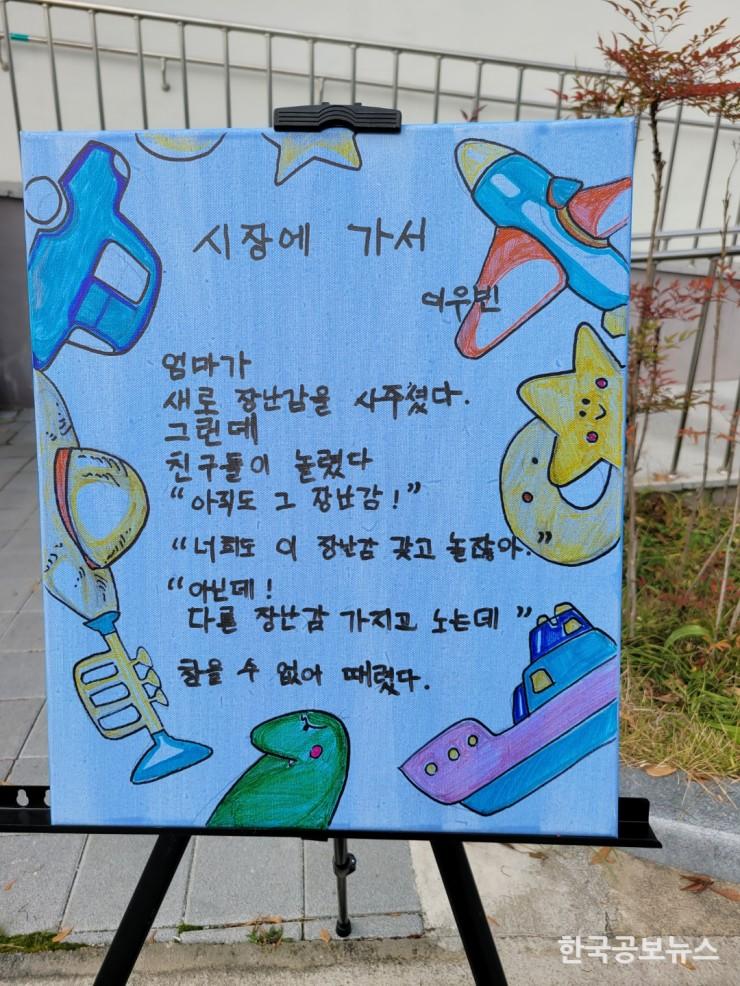 시장에 가서
이우빈
엄마가
새로 장난감을 사주셨다.
그런데
친구들이 놀렸다
“아직도 그 장난감!”
“너희도 이 장난감 갖고 놀잖아.”
“아닌데!
다른 장난감 가지고 노는데”
참을 수 없어 때렸다.
한국공보뉴스